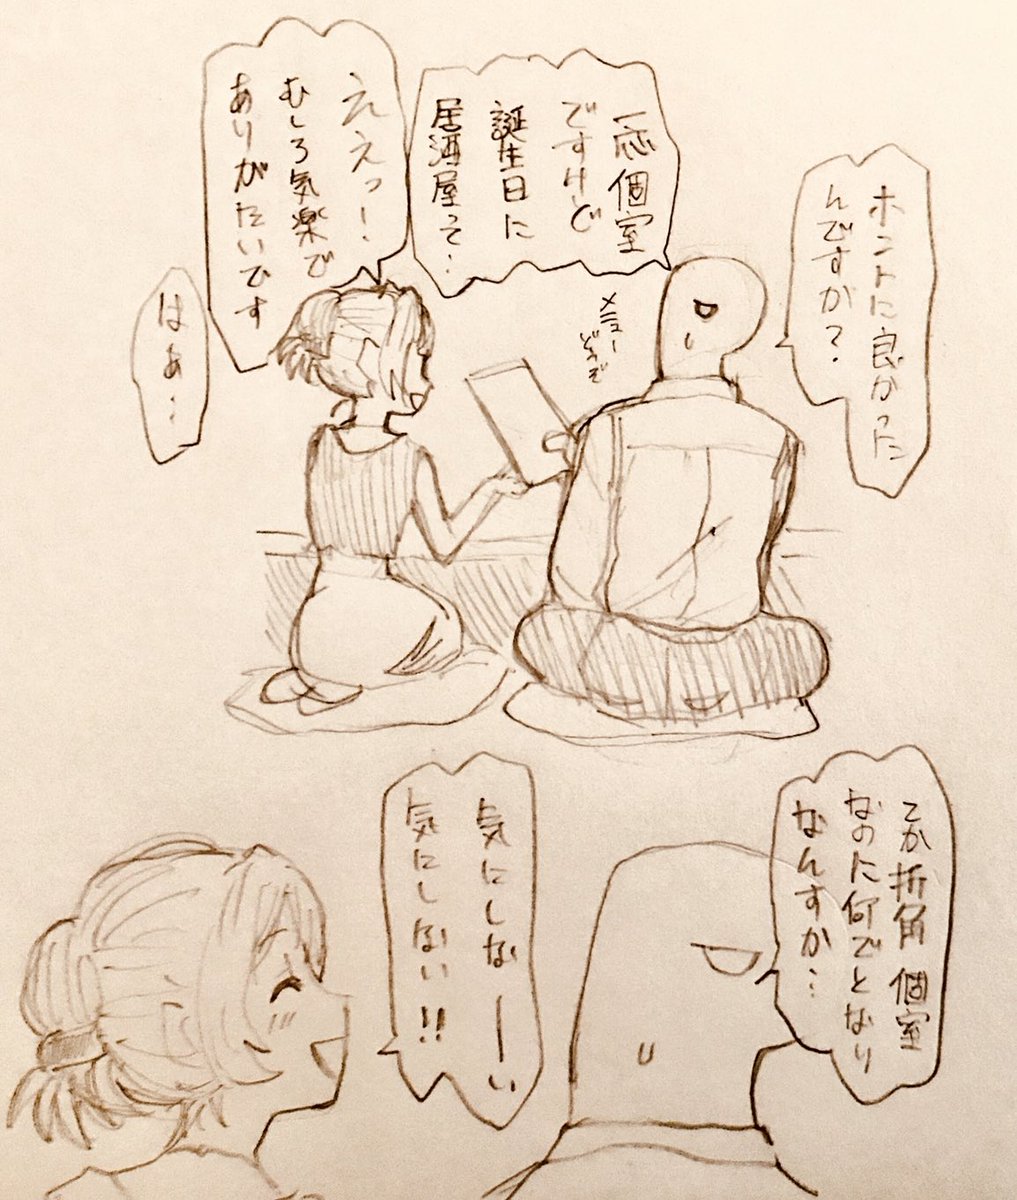 ホントに良かった
んですか?
一応個室
ですけど
誕生日に
居酒屋って・
メニュー
どうぞ
ええっ!
むしろ気楽で
ありがたいです
はぁ…
てか折角個室
なのに何でとなり
なんすか…
気にしなーーい
気にしない!!